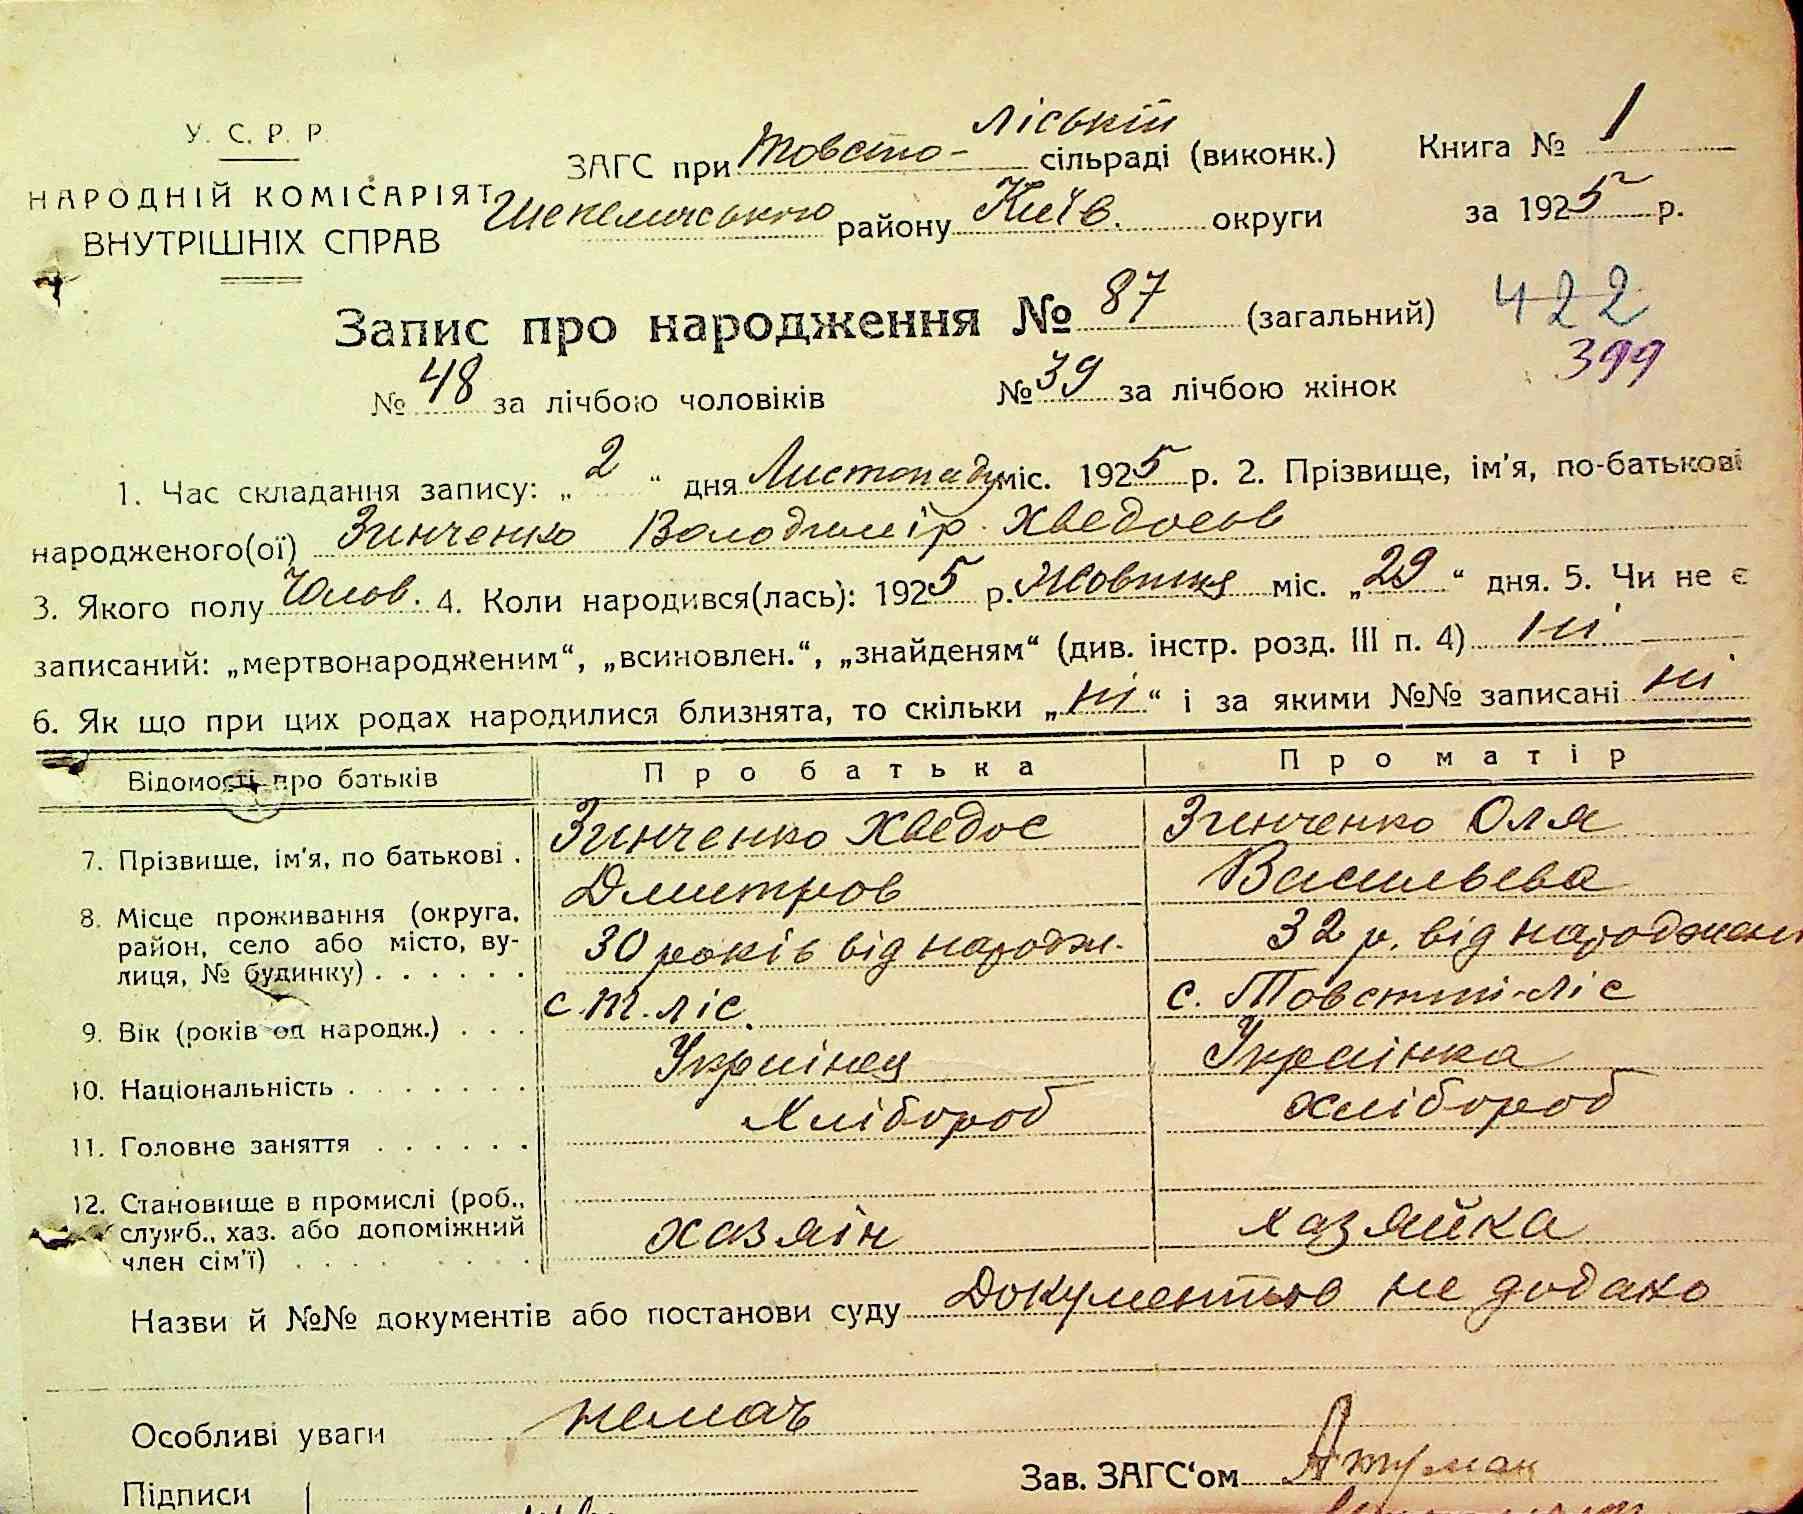 У. С. Р. Р.
НАРОДНІЙ КОМІСАРІЯТ
ВНУТРІШНІХ СПРАВ
ліській
ЗАГС при Товсто- сільраді (виконк.)
Шепелицького району Київ. округи
Книга № 1
за 1925 р.
Запис про народження № 87 (загальний)
422
399
№ 48 за лічбою чоловіків № 39 за лічбою жінок
1. Час складання запису: „2“ дня Листопаду міс. 1925 р. 2. Прізвище, ім'я, по-батькові
народженого(ої) Зинченко Володимір Хведосов
3. Якого полу Чолов. 4. Коли народився(лась): 1925 р. Жовтня міс. „29“ дня. 5. Чи не є
записаний: „мертвонародженим“, „всиновлен.“, „знайденям“ (див. інстр. розд. III п. 4) ні
6. Як що при цих родах народилися близнята, то скільки „ні“ і за якими №№ записані ні
Відомості про батьків Про батька Про матір
7. Прізвище, ім'я, по батькові . Зинченко Хведос Зинченко Оля
Дмитров Васильева
8. Місце проживання (округа,
район, село або місто, ву-
лиця, № будинку) . . . . . .
30 років від народж. 32 р. від народжен
с. Т. ліс. с. Товстий-Ліс
9. Вік (років од народж.) . . .
10. Національність . . . . . . . Украінец Украінка
11. Головне заняття . . . . . . Хлібороб хлібороб
12. Становище в промислі (роб.,
служб., хаз. або допоміжний
член сім'ї) . . . . . . . .
хазяін хазяйка
Назви й №№ документів або постанови суду Документов не додано
Особливі уваги немає
Зав. ЗАГС'ом
Підписи